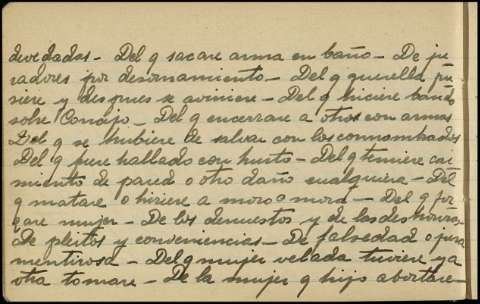 devedados - Del q sacare arma en baño - De ju
radores por desornamiento - Del q querella pu
siere y despues se aviniere - Del q hiciere bando
sobre Concejo - Del q encerrare a otro con armas
Del q se hubiere de salvar con los connombrados
Del q fuere hallado con hurto - Del q temiere cai
miento de pared o otro daño cualquiera - Del
q matare o hiriere a moro o mora - Del q for
zare mujer - De los denuestos y de las deshonras
De pleitos y conveniencias - De falsedad o jura
mentirosa - Del q mujer velada tuviere y a
otra tomare - De la mujer q hijo abortare